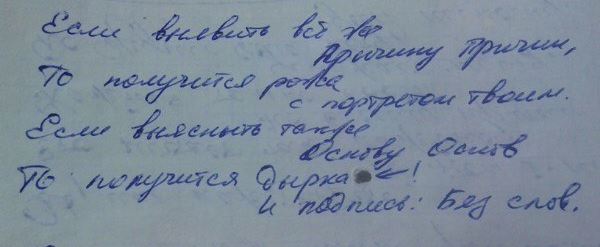 Если выявить всё
Причину Причин,
То получится рожа
с портретом твоим.
Если выяснить также
Основу Основ
То получится Дырка !
и подпись: Без слов.